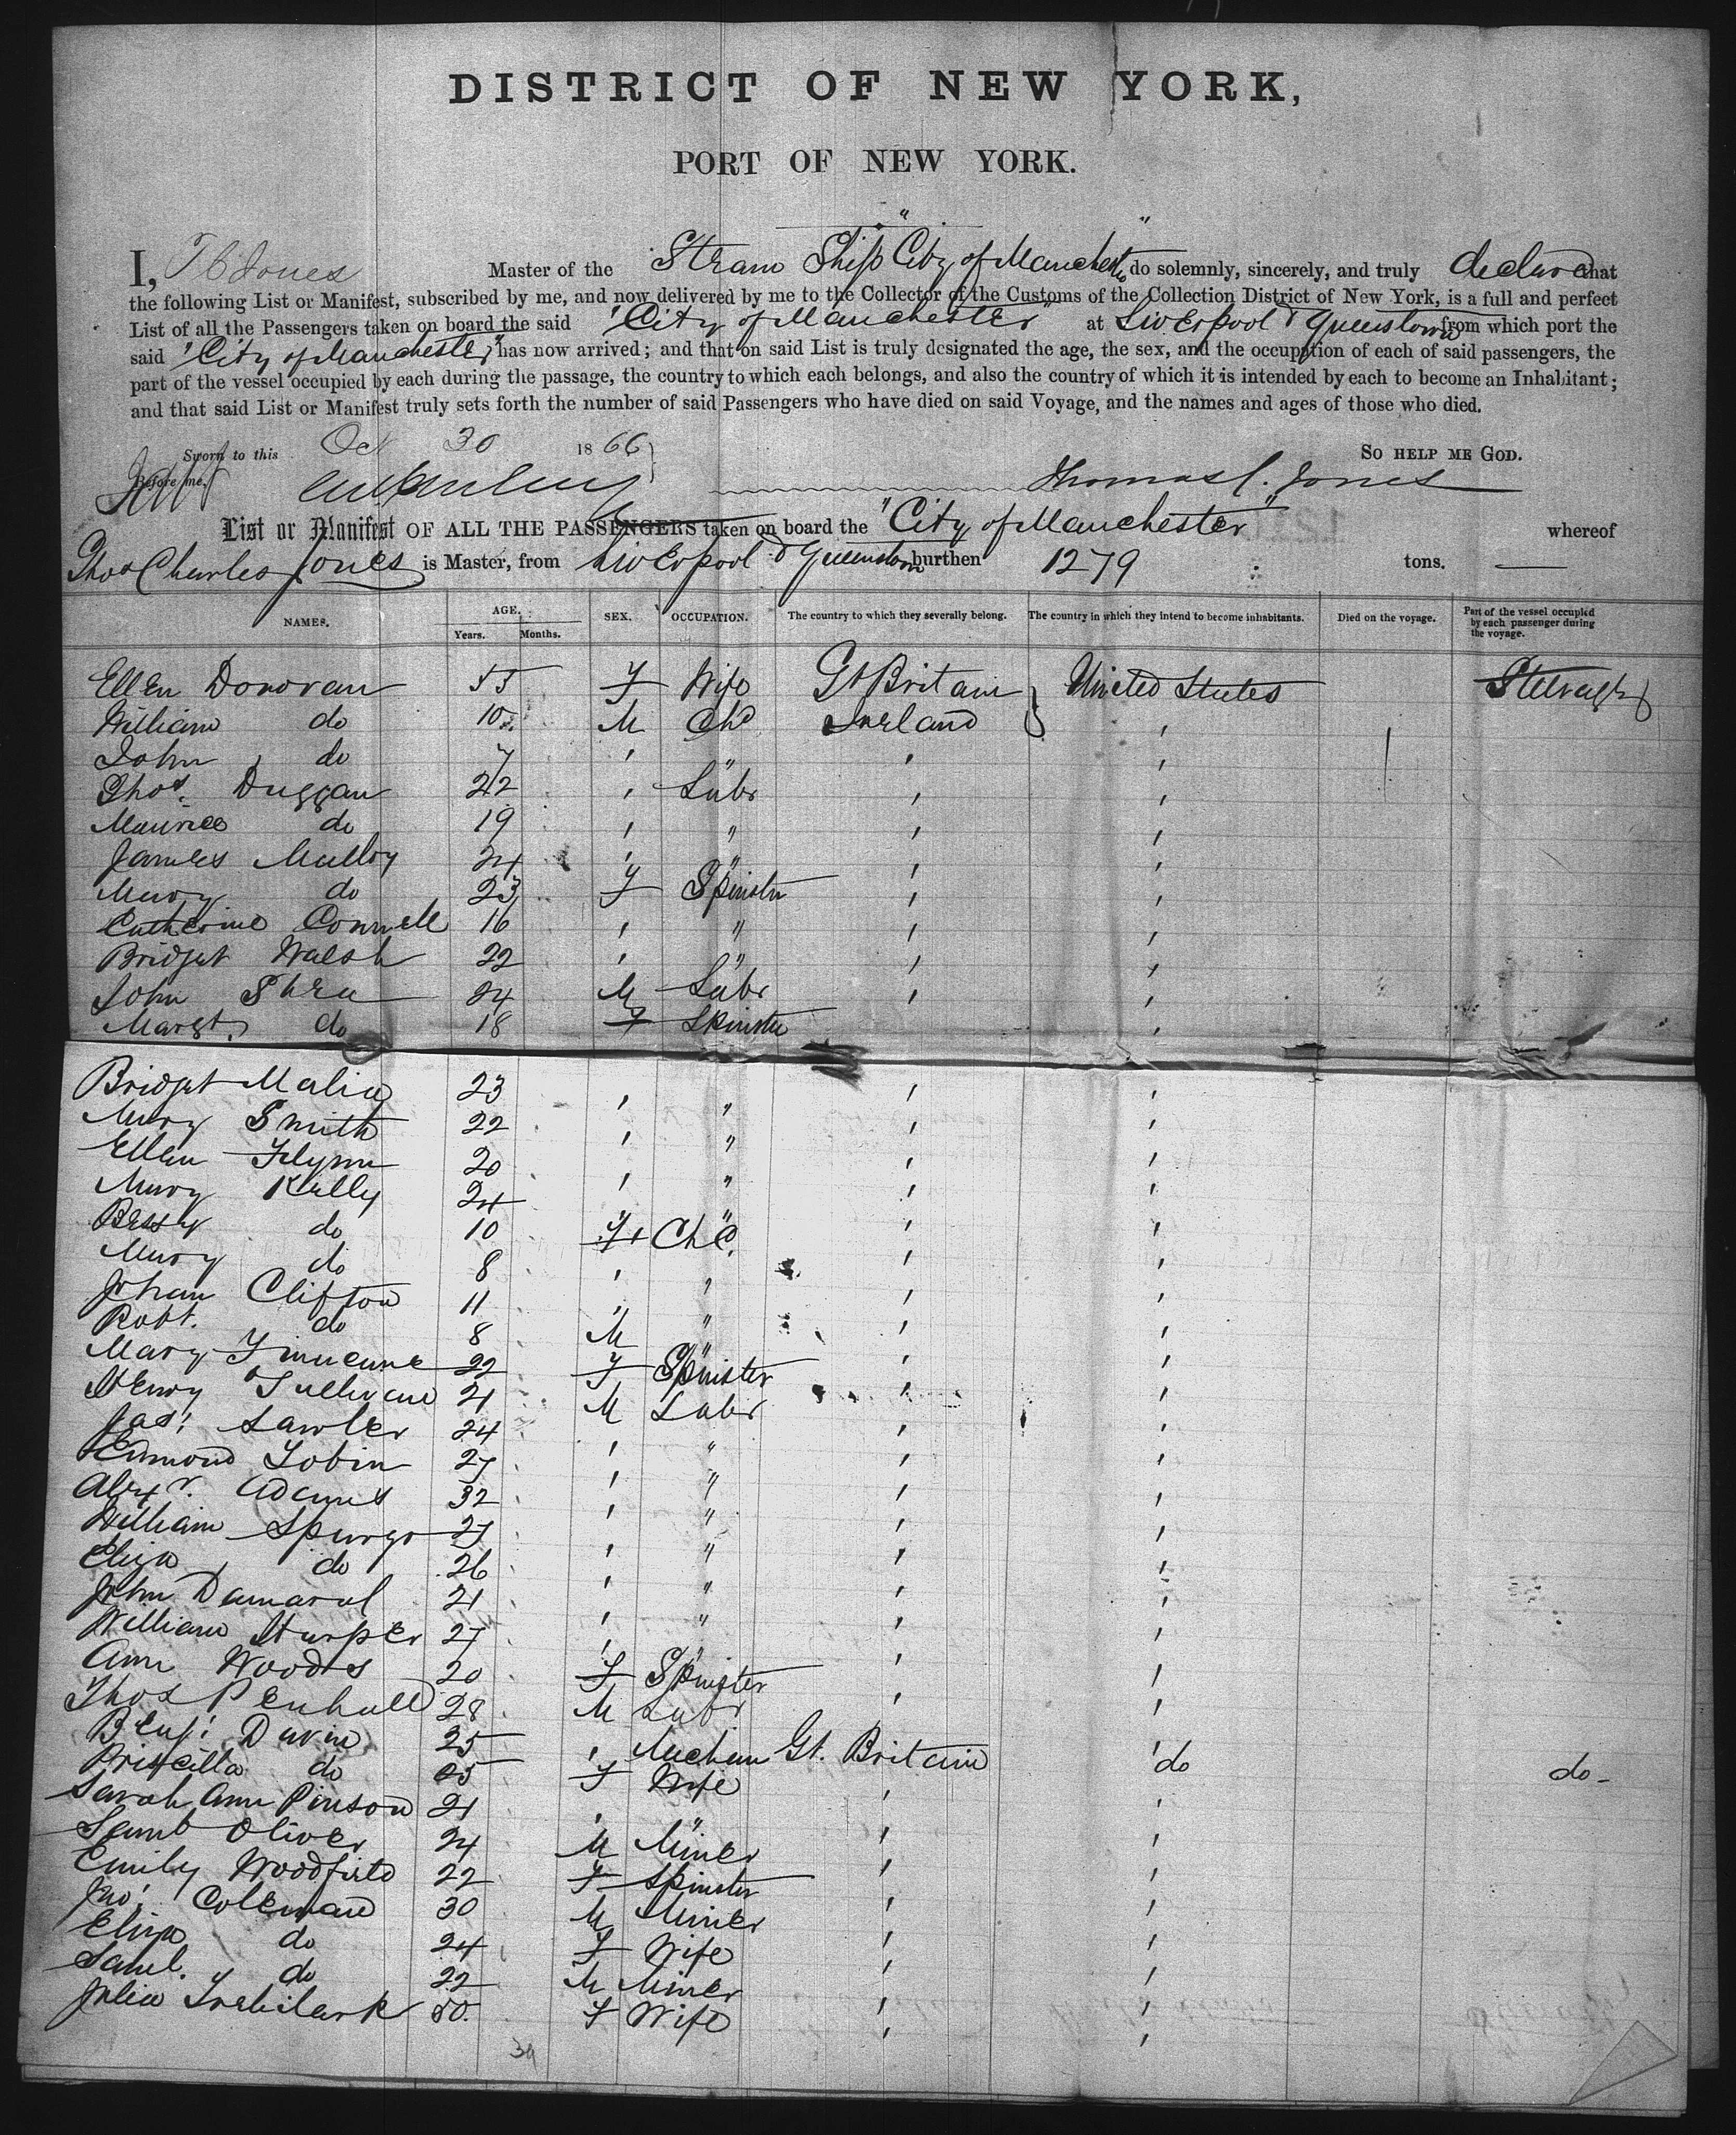 DISTRICT OF NEW YORK,
PORT OF NEW YORK.
I, T C Jones Master of the Steam Ship "City of Manchester" do solemnly, sincerely, and truly declare that
the following List or Manifest, subscribed by me, and now delivered by me to the Collector of the Customs of the Collection District of New York, is a full and perfect
List of all the Passengers taken on board the said "City of Manchester" at Liverpool & Queenstown from which port the
said "City of Manchester" has now arrived; and that on said List is truly designated the age, the sex, and the occupation of each of said passengers, the
part of the vessel occupied by each during the passage, the country to which each belongs, and also the country of which it is intended by each to become an Inhabitant;
and that said List or Manifest truly sets forth the number of said Passengers who have died on said Voyage, and the names and ages of those who died.
Sworn to this Oct 30 1866 SO HELP ME GOD.
Before me, Thomas C. Jones
List or Manifest OF ALL THE PASSENGERS taken on board the "City of Manchester" whereof
Thos Charles Jones is Master, from Liverpool & Queenstown burthen 1279 tons.
NAMES. AGE. Years. Months. SEX. OCCUPATION. The country to which they severally belong. The country in which they intend to become inhabitants. Died on the voyage. Part of the vessel occupied by each passenger during the voyage.
Ellen Donovan 55 F Wife Gt Britain United States Steerage
William do 10 M Chd Ireland '
John do 7 ' " ' '
Thos. Duggan 22 ' Labr ' '
Maurice do 19 ' " ' '
James Mulloy 24 ' " ' '
Mary do 23 F Spinster ' '
Catherine Connell 16 ' " ' '
Bridget Walsh 22 ' " ' '
John Shea 24 M Labr ' '
Margt. do 18 F Spinster '
Bridget Malia 23 ' " ' '
Mary Smith 22 ' " ' '
Ellen Flynn 20 ' " ' '
Mary Kelly 24 ' " ' '
Bessy do 10 F Chd. ' '
Mary do 8 ' " ' '
Johan Clifton 11 " " ' '
Robt. do 8 M " ' '
Mary Finucane 22 F Spinster ' '
Henry Sullivan 21 M Labr ' '
Jas. Lawler 24 ' " ' '
Edmond Tobin 27 ' " ' '
Alexr. Adams 32 ' " ' '
William Spurgo 27 ' " ' '
Eliza do 26 ' " ' '
John Damaral 21 ' " ' '
William Harper 27 ' " ' '
Ann Woods 20 F Spinster '
Thos Penhall 28 M Labr ' '
Benj. Davin 25 ' Mechan Gt. Britain do do
Priscilla do 25 F Wife ' '
Sarah Ann Pinson 21 ' " ' '
Saml Oliver 24 M Miner ' '
Emily Woodfield 22 F Spinster ' '
Jno. Coleman 30 M Miner ' '
Eliza do 24 F Wife ' '
Saml. do 22 M Miner ' '
Julia Trebilcark 50. F Wife ' '
39